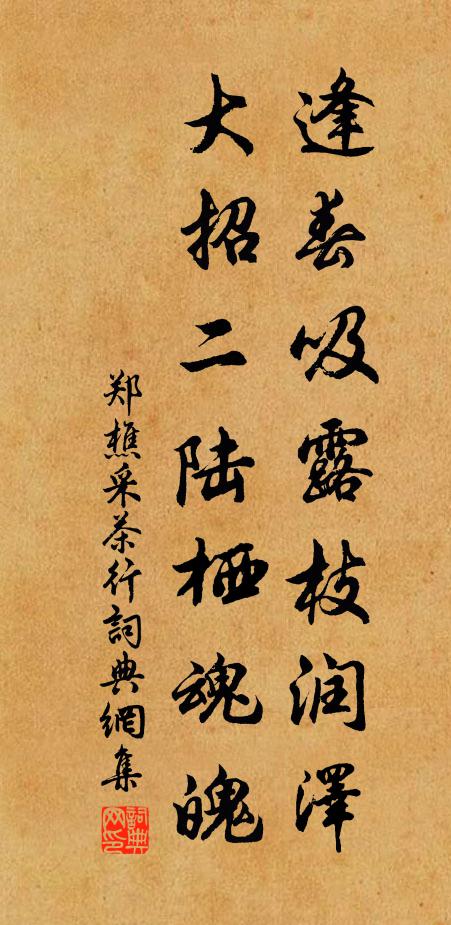 逢春吸露枝润澤
大招二陆栖魂魄
郑樵采茶行詞典網集
詞典网印